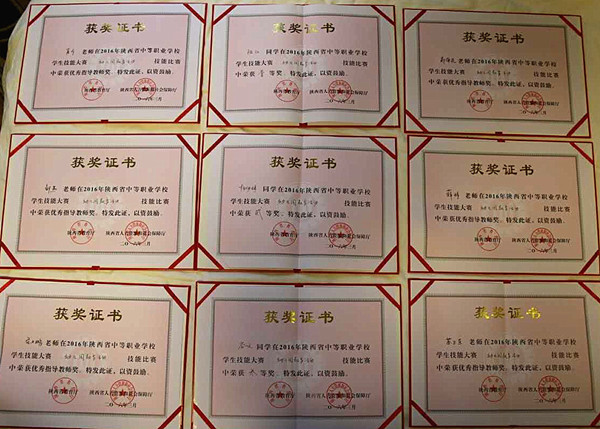 获奖证书
老师在2016年陕西省中等职业学校
学生技能大赛 技能比赛
中荣获优秀指导教师奖。特发此证，以资鼓励。
陕西省教育厅 陕西省人力资源和社会保障厅
二〇一六年三月
获奖证书
同学在2016年陕西省中等职业学校
学生技能大赛 技能比赛
中荣获 等奖。特发此证，以资鼓励。
陕西省教育厅 陕西省人力资源和社会保障厅
二〇一六年三月
获奖证书
老师在2016年陕西省中等职业学校
学生技能大赛 技能比赛
中荣获优秀指导教师奖。特发此证，以资鼓励。
陕西省教育厅 陕西省人力资源和社会保障厅
二〇一六年三月
获奖证书
老师在2016年陕西省中等职业学校
学生技能大赛 技能比赛
中荣获优秀指导教师奖。特发此证，以资鼓励。
陕西省教育厅 陕西省人力资源和社会保障厅
二〇一六年三月
获奖证书
同学在2016年陕西省中等职业学校
学生技能大赛 技能比赛
中荣获 贰 等奖。特发此证，以资鼓励。
陕西省教育厅 陕西省人力资源和社会保障厅
二〇一六年三月
获奖证书
老师在2016年陕西省中等职业学校
学生技能大赛 技能比赛
中荣获优秀指导教师奖。特发此证，以资鼓励。
陕西省教育厅 陕西省人力资源和社会保障厅
二〇一六年三月
获奖证书
老师在2016年陕西省中等职业学校
学生技能大赛 技能比赛
中荣获优秀指导教师奖。特发此证，以资鼓励。
陕西省教育厅 陕西省人力资源和社会保障厅
二〇一六年三月
获奖证书
同学在2016年陕西省中等职业学校
学生技能大赛 技能比赛
中荣获 叁 等奖。特发此证，以资鼓励。
陕西省教育厅 陕西省人力资源和社会保障厅
二〇一六年三月
获奖证书
老师在2016年陕西省中等职业学校
学生技能大赛 技能比赛
中荣获优秀指导教师奖。特发此证，以资鼓励。
陕西省教育厅 陕西省人力资源和社会保障厅
二〇一六年三月